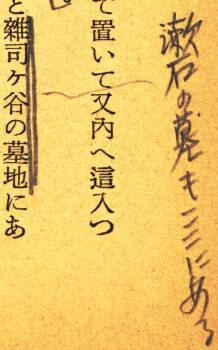 漱石の墓もここにある
て置いて又內へ這入つ
と雜司ヶ谷の墓地にあ